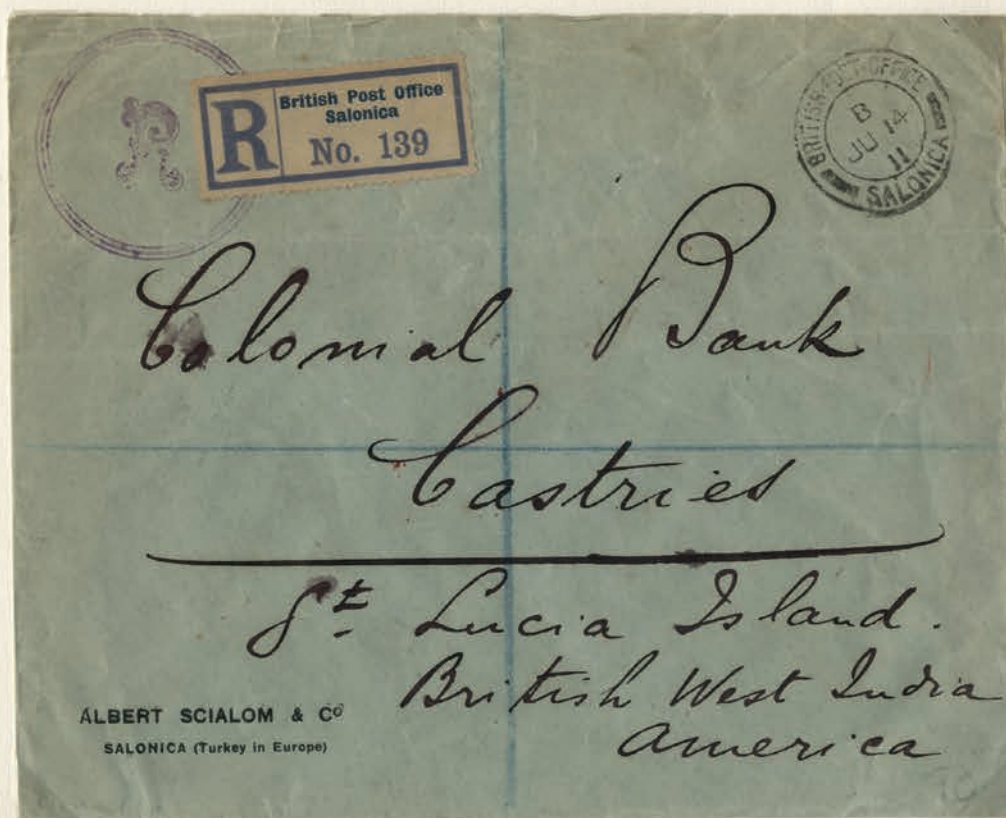 R
R British Post Office
Salonica
No. 139
BRITISH POST OFFICE
B
JU 14
11
SALONICA
Colonial Bank
Castries
St Lucia Island.
British West India
America
ALBERT SCIALOM & Co
SALONICA (Turkey in Europe)